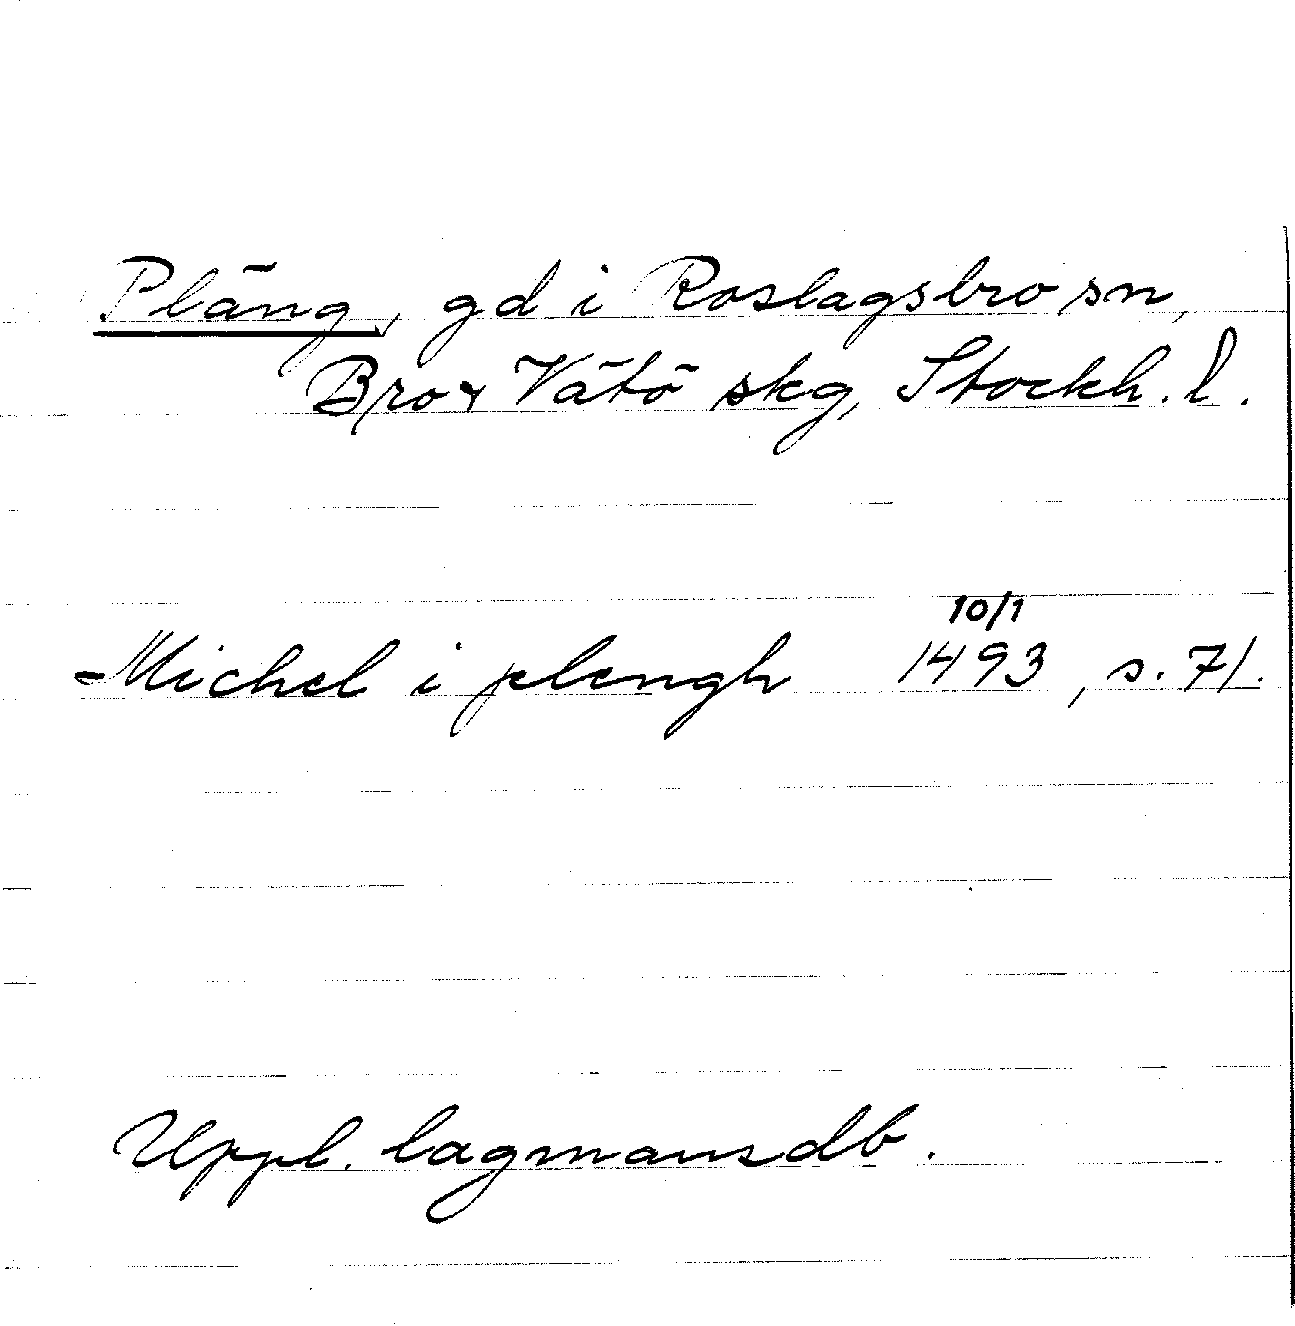 Pläng, gd i Roslagsbro sn,
Bro & Vätö skg, Stockh. l.
10/1
Michel i plengh 1493, s. 71.
Uppl. lagmansdb.